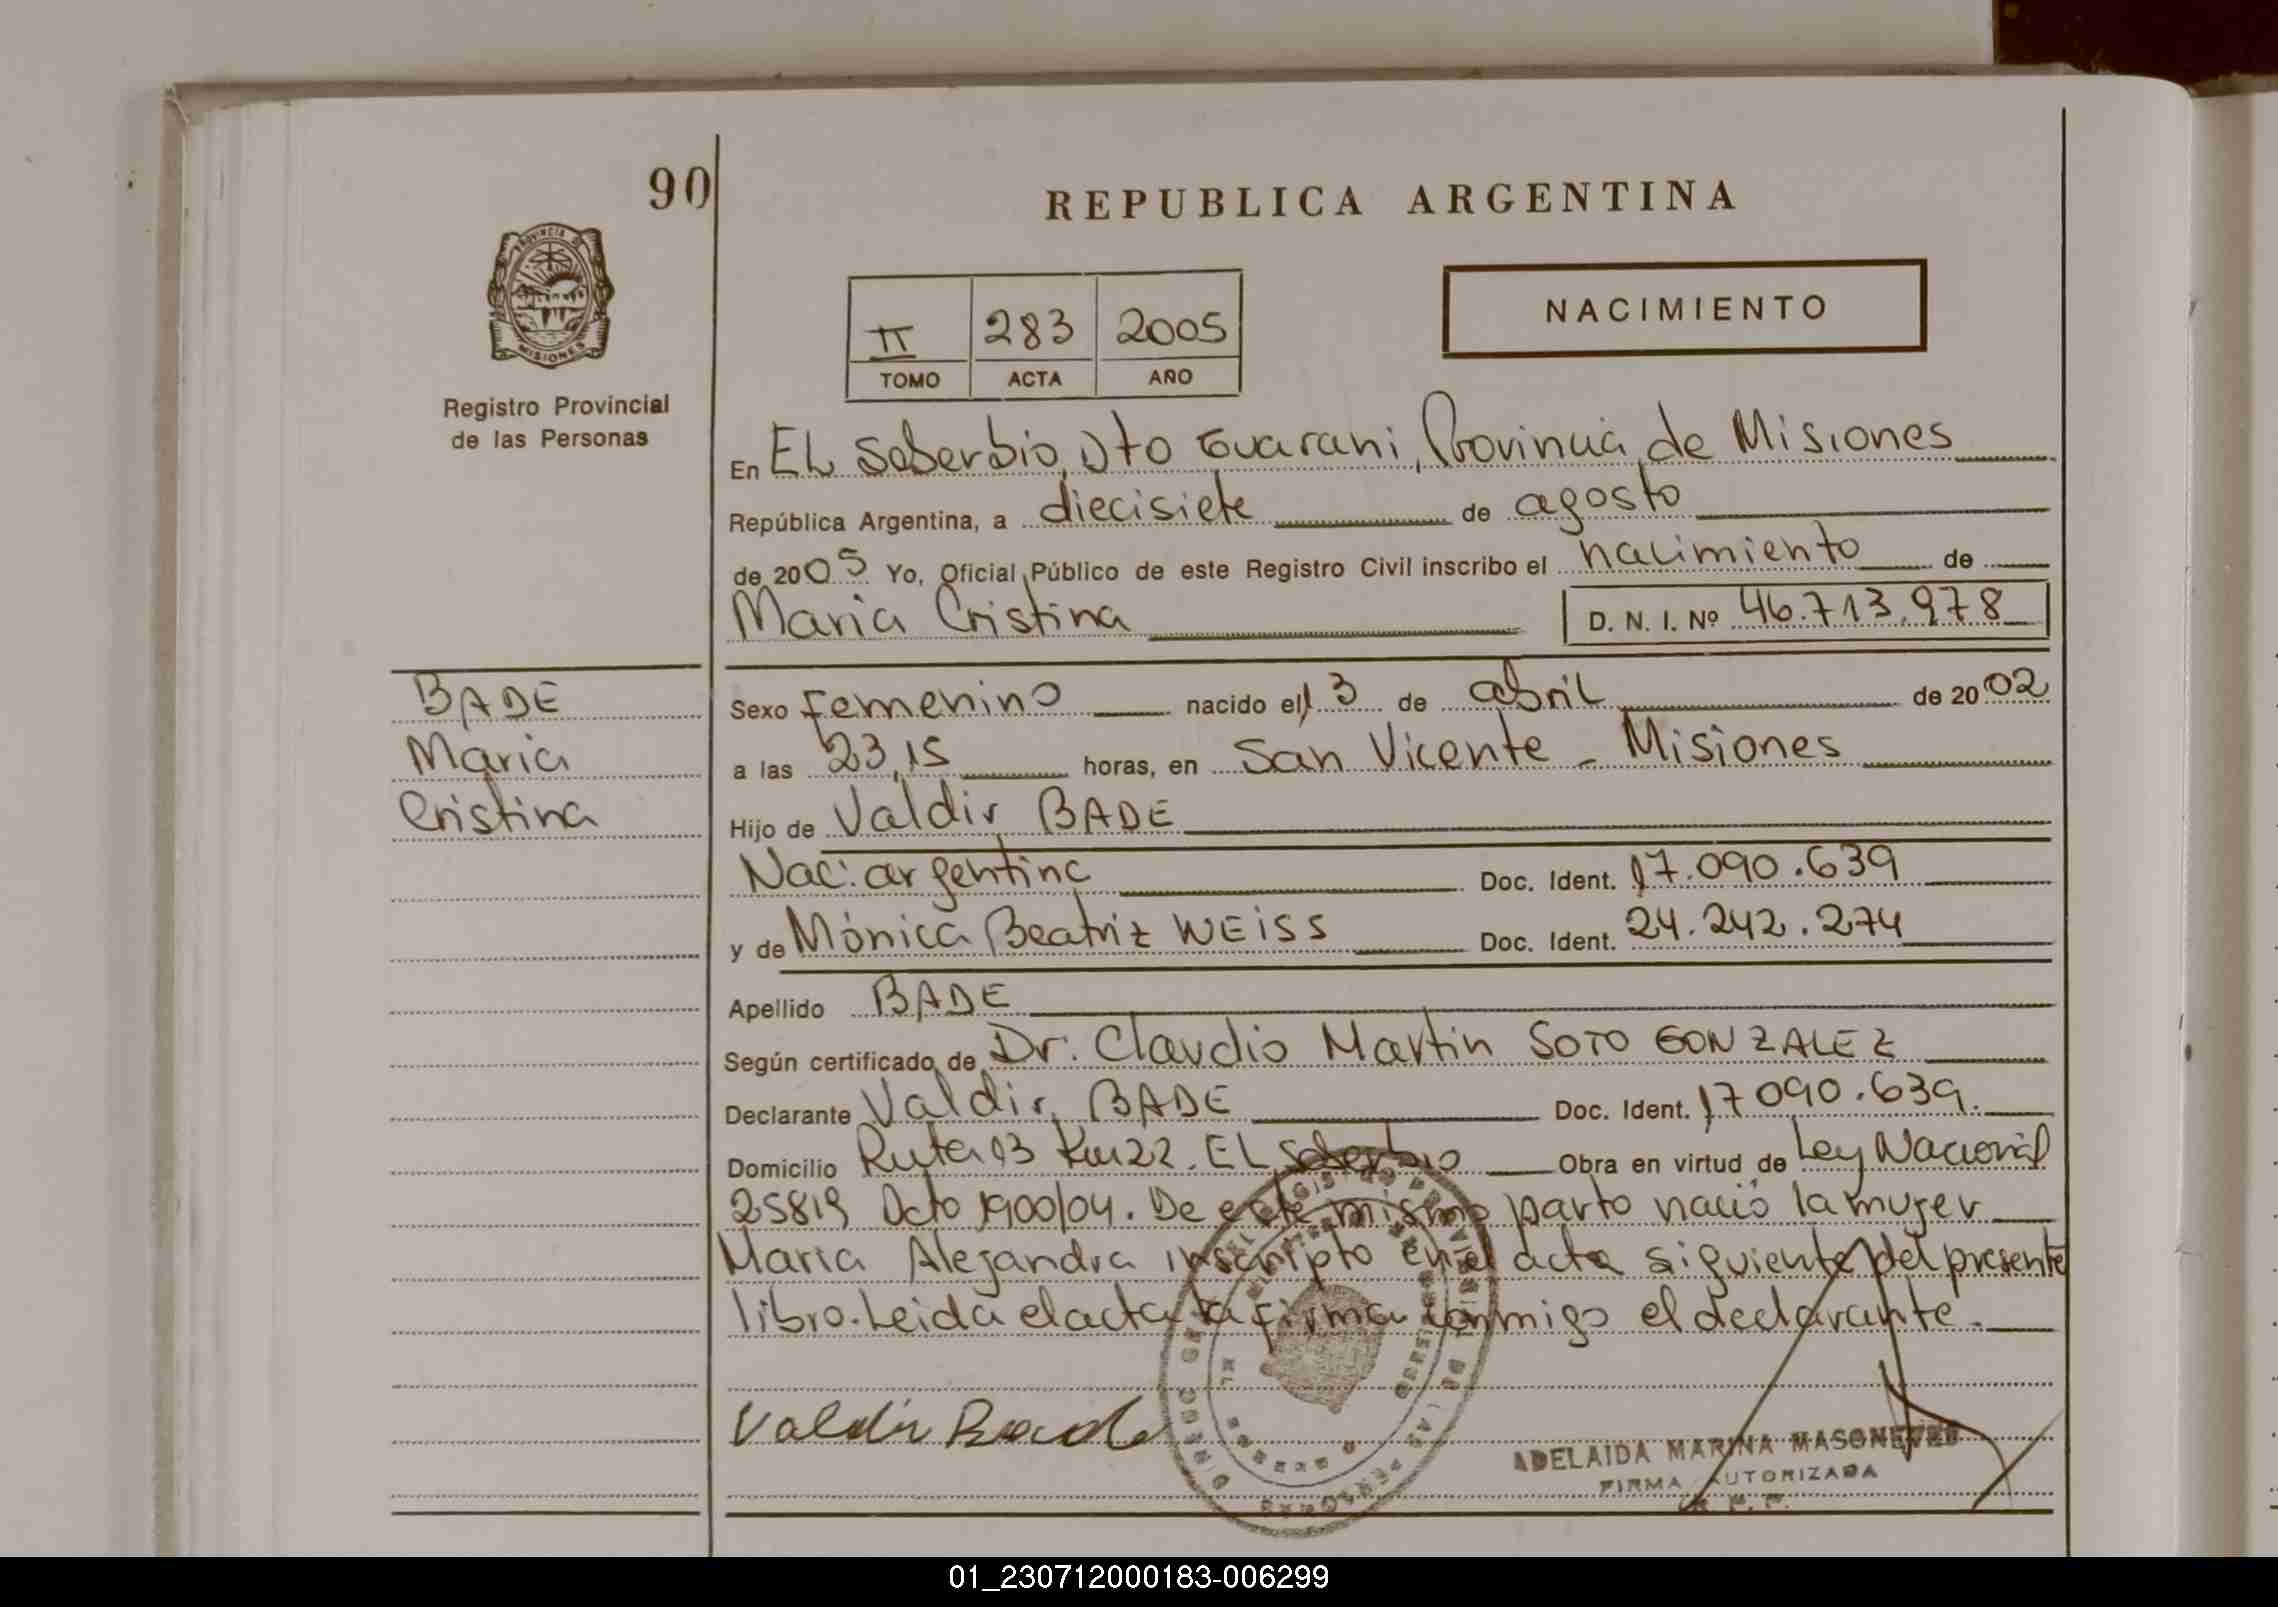 90
REPUBLICA ARGENTINA
PROVINCIA DE
MISIONES
Registro Provincial
de las Personas
NACIMIENTO
II 283 2005
TOMO ACTA AÑO
En EL Soberbio, Dto Guarani, Provincia de Misiones
República Argentina, a diecisiete de agosto
de 2005 Yo, Oficial Público de este Registro Civil inscribo el nacimiento de
Maria Cristina D. N. I. Nº 46.713.978
BADE
Maria
Cristina
Sexo Femenino nacido el 13 de abril de 2002
a las 23,15 horas, en San Vicente - Misiones
Hijo de Valdir BADE
Nac: argentina Doc. Ident. 17.090.639
y de Mónica Beatriz WEISS Doc. Ident. 24.242.274
Apellido BADE
Según certificado de Dr. Claudio Martin SOTO GONZALEZ
Declarante Valdir BADE Doc. Ident. 17090.639.
Domicilio Ruta 13 Km 22. EL Soberbio Obra en virtud de Ley Nacional
25819 Dcto 1900/04. De este mismo parto nació la mujer
Maria Alejandra inscripto en el acta siguiente del presente
libro. Leida el acta la firma conmigo el declarante.
Valdir Bade
ADELAIDA MARINA
FIRMA AUTORIZADA
01_230712000183-006299